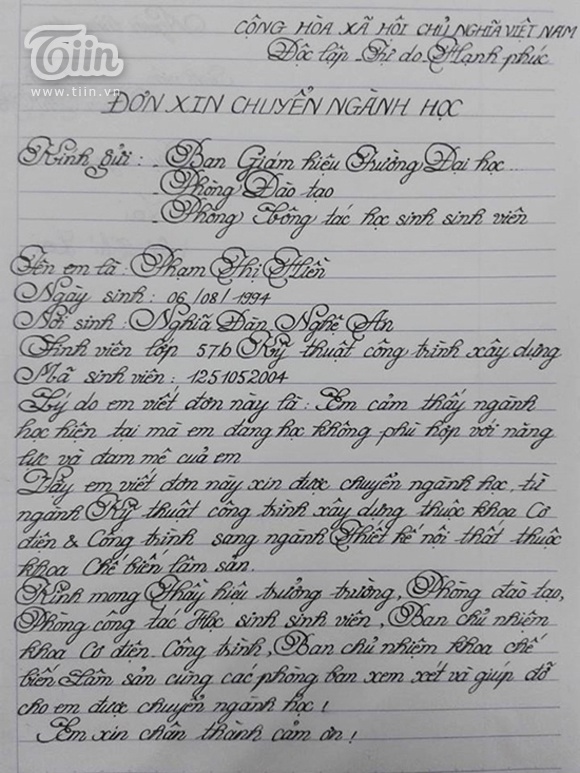 Tiin
www.tiin.vn
CỘNG HÒA XÃ HỘI CHỦ NGHĨA VIỆT NAM
Độc lập - Tự do - Hạnh phúc
ĐƠN XIN CHUYỂN NGÀNH HỌC
Kính gửi : - Ban Giám hiệu Trường Đại học ...
- Phòng Đào tạo
- Phòng Công tác học sinh sinh viên
Tên em là : Phạm Thị Hiền
Ngày sinh : 06/08/1994
Nơi sinh : Nghĩa Đàn - Nghệ An
Sinh viên lớp 57b Kỹ thuật công trình xây dựng
Mã sinh viên : 1251052004
Lý do em viết đơn này là : Em cảm thấy ngành
học hiện tại mà em đang học không phù hợp với năng
lực và đam mê của em
Vậy em viết đơn này xin được chuyển ngành học, từ
ngành Kỹ thuật công trình xây dựng thuộc khoa Cơ
điện & Công trình sang ngành Thiết kế nội thất thuộc
khoa Chế biến lâm sản.
Kính mong Thầy hiệu trưởng trường, Phòng đào tạo,
Phòng công tác Học sinh sinh viên, Ban chủ nhiệm
khoa Cơ điện Công trình, Ban chủ nhiệm khoa chế
biến Lâm sản cùng các phòng ban xem xét và giúp đỡ
cho em được chuyển ngành học !
Em xin chân thành cảm ơn !